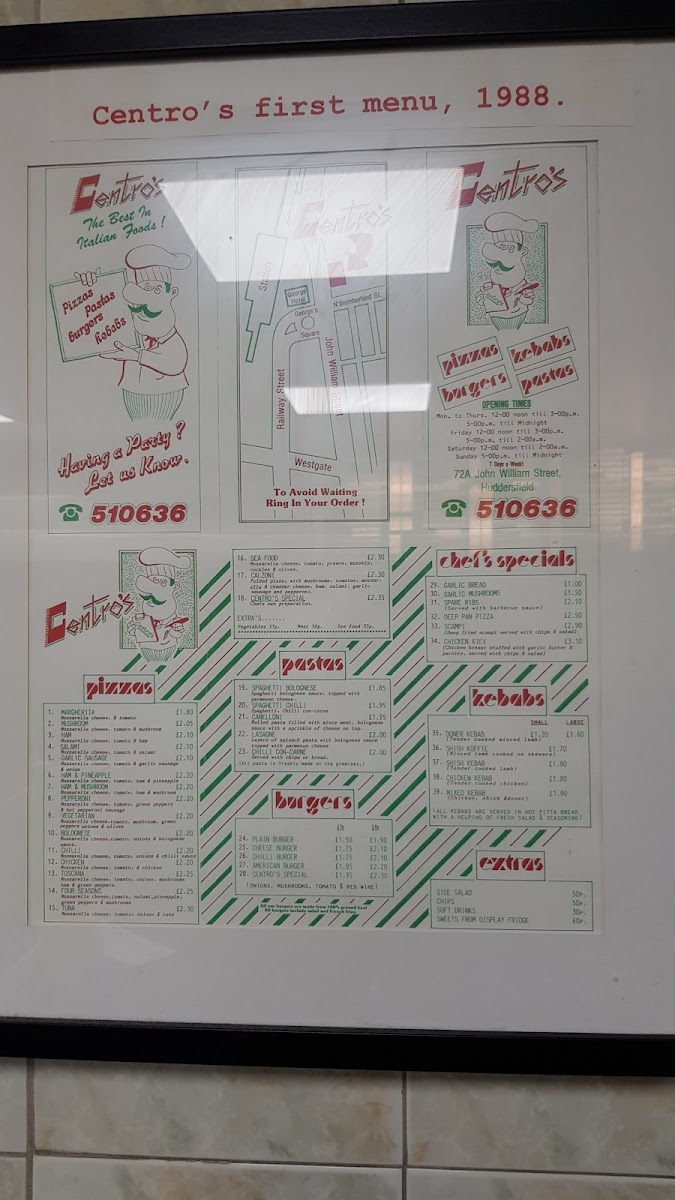 Centro's first menu, 1988.
Centro's
The Best In
Italian Foods!
Pizzas
Pastas
Burgers
Kebabs
Having a Party?
Let us Know.
510636
Centro's
Station
George Hotel
George's
Square
N'thumberland St.
John William Street
Railway Street
Westgate
To Avoid Waiting
Ring In Your Order!
Centro's
pizzas
kebabs
burgers
pastas
OPENING TIMES
Mon. to Thurs. 12-00 noon till 3-00p.m.
5-00p.m. till Midnight
Friday 12-00 noon till 3-00p.m.
5-00p.m. till 2-00a.m.
Saturday 12-00 noon till 2-00a.m.
Sunday 5-00p.m. till Midnight
7 Days a Week!
72A John William Street,
Huddersfield
510636
Centro's
pizzas
1. MARGHERITA £1.80
Mozzarella cheese, & tomato
2. MUSHROOM £2.05
Mozzarella cheese, tomato & mushroom
3. HAM £2.10
Mozzarella cheese, tomato & ham
4. SALAMI £2.10
Mozzarella cheese, tomato & salami
5. GARLIC SAUSAGE £2.10
Mozzarella cheese, tomato & garlic sausage
& onion
6. HAM & PINEAPPLE £2.20
Mozzarella cheese, tomato, ham & pineapple
7. HAM & MUSHROOM £2.20
Mozzarella cheese, tomato, ham & mushroom
8. PEPPERONI £2.20
Mozzarella cheese, tomato, green peppers
& hot pepperoni sausage
9. VEGETARIAN £2.20
Mozzarella cheese, tomato, mushroom, green
peppers onions & olives
10. BOLOGNESE £2.20
Mozzarella cheese, tomato, onions & bolognese
sauce.
11. CHILLI £2.20
Mozzarella cheese, tomato, onions & chilli sauce
12. CHICKEN £2.20
Mozzarella cheese, tomato, & chicken
13. TOSCANA £2.25
Mozzarella cheese, tomato, onions, mushrooms
ham & green peppers.
14. FOUR SEASONS £2.25
Mozzarella cheese, tomato, salami, pineapple,
green peppers & mushrooms
15. TUNA £2.30
Mozzarella cheese, tomato, onions & tuna
16. SEA FOOD £2.30
Mozzarella cheese, tomato, prawns, mussels,
cockles & olives.
17. CALZONI £2.30
Folded pizza; with mushrooms, tomatoe, mozzar-
ella & cheddar cheese, ham, salami, garlic
sausage and pepperoni.
18. CENTRO'S SPECIAL £2.35
Chefs own preparation.
EXTRA'S.......
Vegetables 25p. Meat 30p. Sea food 35p.
pastas
19. SPAGHETTI BOLOGNESE £1.85
Spaghetti bolognese sauce, topped with
parmesan cheese.
20. SPAGHETTI CHILLI £1.95
Spaghetti, Chilli con-carne
21. CANELLONI £1.95
Rolled pasta filled with mince meat, bolognese
sauce with a sprinkle of cheese on top.
22. LASAGNE £2.00
Layers of spinach pasta with bolognese sauce
topped with parmesan cheese
23. CHILLI CON-CARNE £2.00
Served with chips or bread.
(All pasta is freshly made on the premises.)
burgers
¼lb ½lb
24. PLAIN BURGER £1.50 £1.90
25. CHEESE BURGER £1.75 £2.10
26. CHILLI BURGER £1.75 £2.10
27. AMERICAN BURGER £1.85 £2.20
28. CENTRO'S SPECIAL £1.95 £2.30
(ONIONS, MUSHROOMS, TOMATO & RED WINE)
All our burgers are made from 100% ground beef
All burgers include salad and French fries.
chef's specials
29. GARLIC BREAD £1.00
30. GARLIC MUSHROOMS £1.50
31. SPARE RIBS £2.10
(Served with barbecue sauce)
32. DEEP PAN PIZZA £2.50
33. SCAMPI £2.90
(Deep fried scampi served with chips & salad)
34. CHICKEN KIEV £3.10
(Chicken breast stuffed with garlic butter &
parsley, served with chips & salad)
kebabs
SMALL LARGE
35. DONER KEBAB £1.20 £1.60
(Tender cooked minced lamb)
36. SHISH KOEFTE £1.70
(Minced lamb cooked on skewers)
37. SHISH KEBAB £1.80
(Tender cooked lamb)
38. CHICKEN KEBAB £1.80
(Tender cooked chicken)
39. MIXED KEBAB £1.90
(Chicken, shish &doner)
(ALL KEBABS ARE SERVED IN HOT PITTA BREAD
WITH A HELPING OF FRESH SALAD & SEASONING)
extras
SIDE SALAD 50p.
CHIPS 50p.
SOFT DRINKS 30p.
SWEETS FROM DISPLAY FRIDGE 60p.